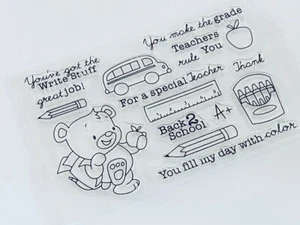 You've got the
Write Stuff
great job!
You make the grade
Teachers
rule You
For a special Teacher
Thank
A+
Back 2
School
You fill my day with color